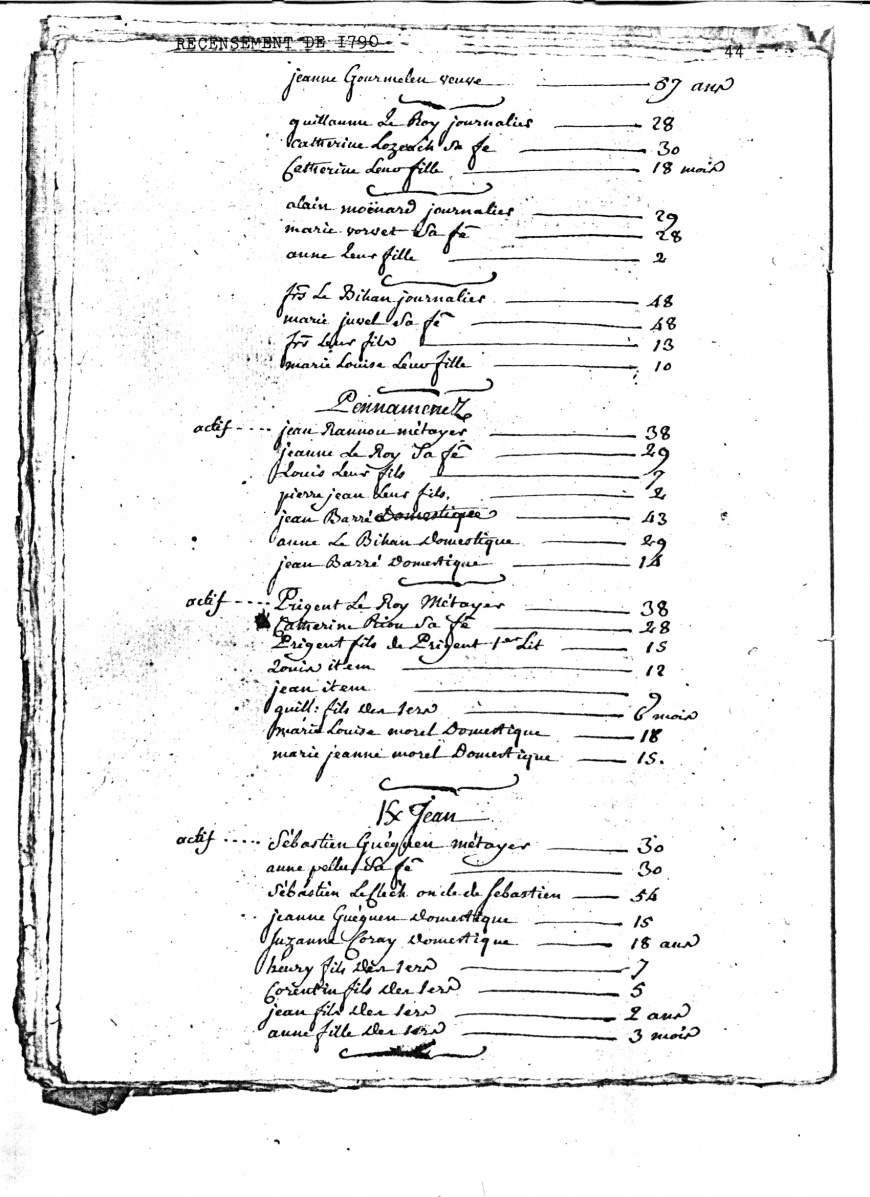 RECENSEMENT DE 1790
44 -
jeanne Gourmelen veuve 57 ans
guillaume Le Roy journalier 28
catherine Lozeach sa fe 30
Catherine Leur fille 18 mois
alain moënard journalier 29
marie vorvet sa fe 28
anne Leur fille 2
frs Le Bihan journalier 48
marie juvel sa fe 48
frs Leur fils 13
marie Louise Leur fille 10
Pennamenez
actif jean Rannou métayer 38
jeanne Le Roy Sa fe 29
Louis Leur fils 7
pierre jean Leur fils. 2
jean Barré Domestique 43
anne Le Bihan Domestique 29
jean Barré Domestique 14
actif Prigent Le Roy Métayer 38
Catherine Riou Sa fe 28
Prigent fils de Prigent 1er Lit 15
Louis item 12
jean item 9
guill: fils des 1ers 6 mois
marie Louise morel Domestique 18
marie jeanne morel Domestique 15.
Jean
actif Sébastien Guéguen métayer 30
anne pellu Sa fe 30
Sébastien Le Clech oncle de Sébastien 54
jeanne Guéguen Domestique 15
Suzanne Coray Domestique 18 ans
henry fils des 1ers 7
Corentin fils des 1ers 5
jean fils des 1ers 2 ans
anne fille des 1ers 3 mois